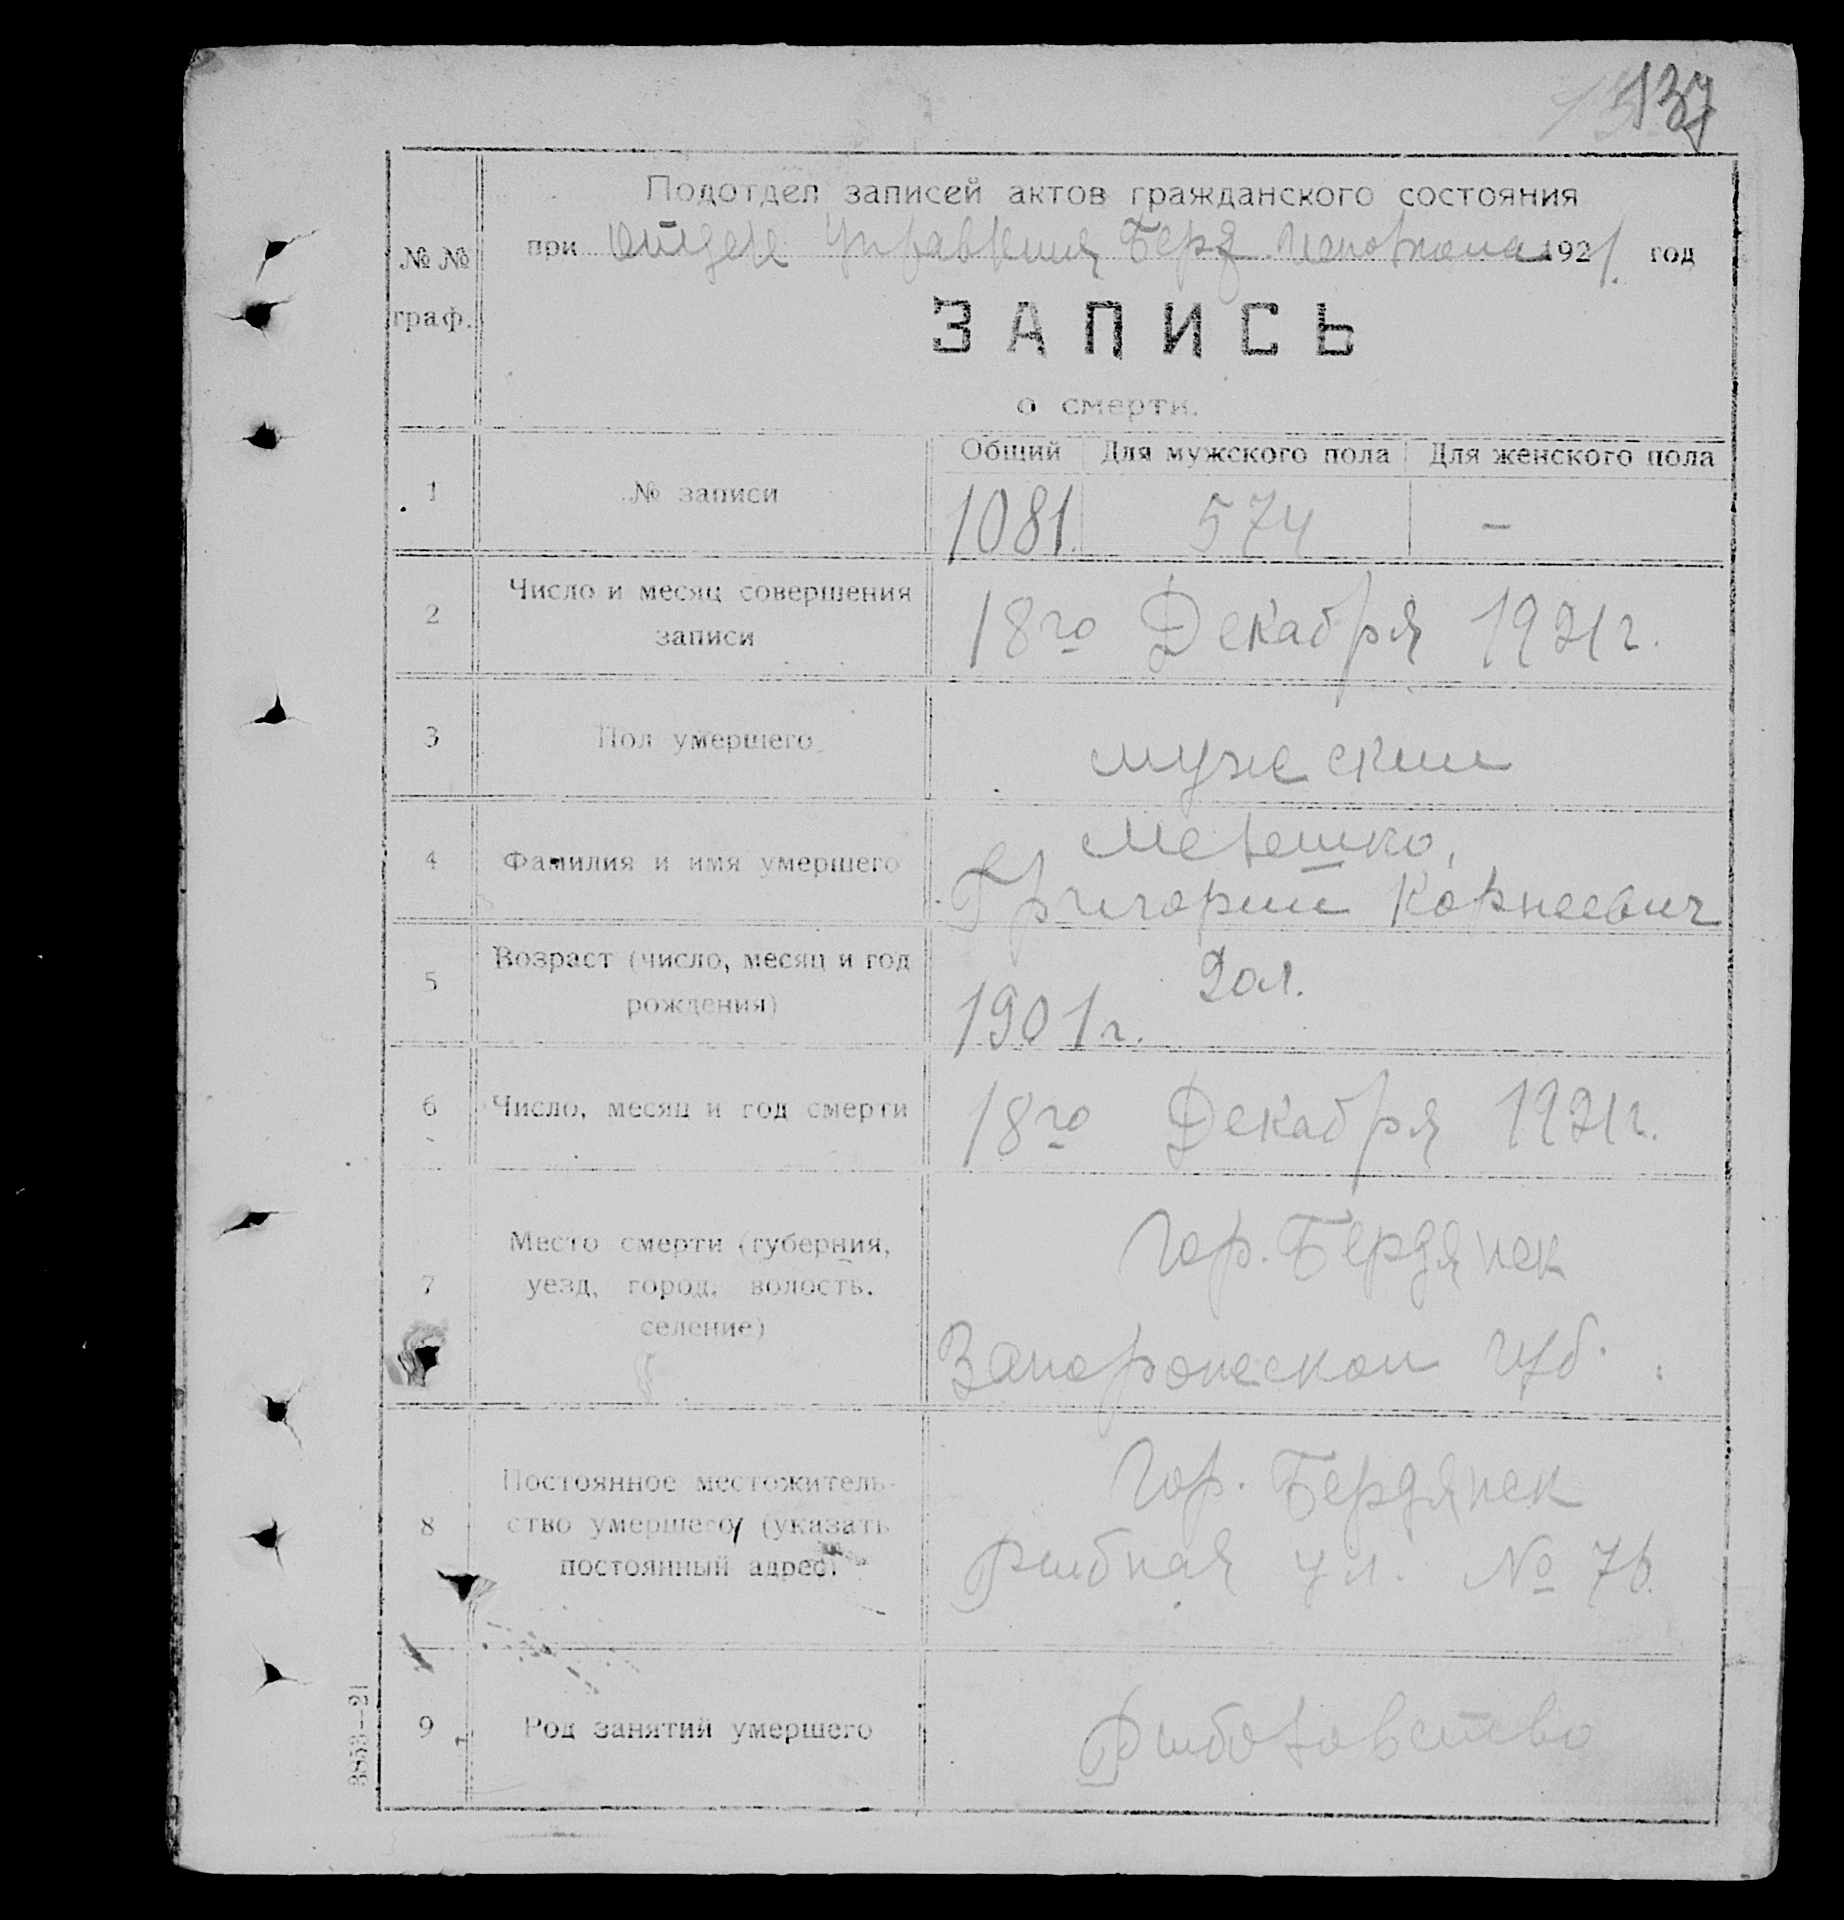 137
Подотдел записей актов гражданского состояния
№ № граф.
при отделе Управления Берд. Исполкома 1921. год
ЗАПИСЬ
о смерти.
Общий Для мужского пола Для женского пола
1 № записи 1081. 574 –
2 Число и месяц совершения
записи
18го Декабря 1921г.
3 Пол умершего
мужеский
4 Фамилия и имя умершего
Мелешко,
Григорий Корнеевич
5 Возраст (число, месяц и год
рождения)
20 л.
1901 г.
6 Число, месяц и год смерти
18го Декабря 1921г.
7 Место смерти (губерния,
уезд, город, волость,
селение)
Гор. Бердянск
Запорожской губ.
8 Постоянное местожитель-
ство умершего (указать
постоянный адрес)
Гор. Бердянск
Рыбная ул. № 76.
9 Род занятий умершего
Рыболовство
3853—21